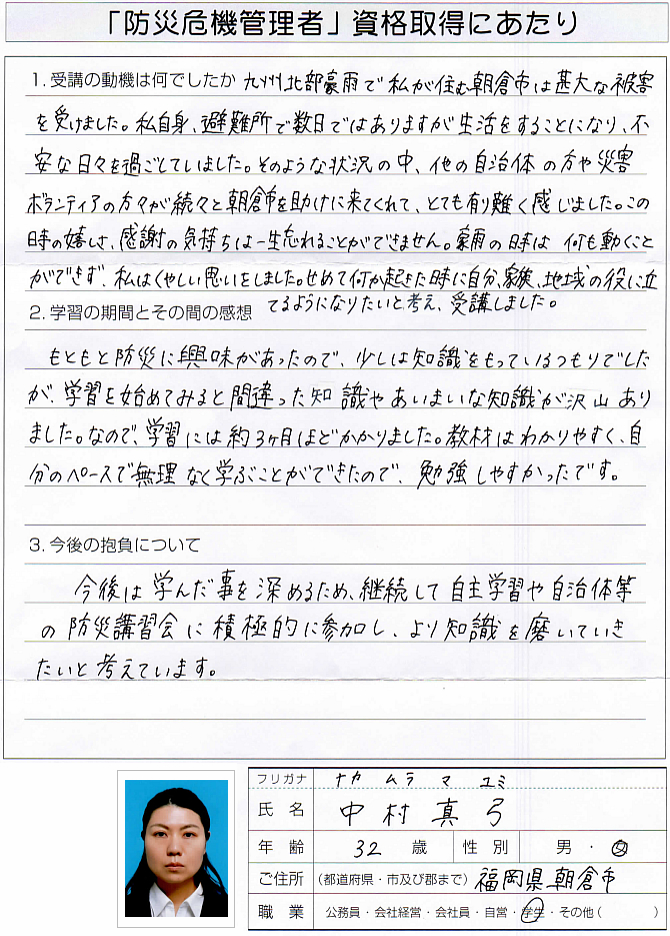 「防災危機管理者」資格取得にあたり
1. 受講の動機は何でしたか 九州北部豪雨で私が住む朝倉市は甚大な被害
を受けました。私自身、避難所で数日ではありますが生活をすることになり、不
安な日々を過ごしていました。そのような状況の中、他の自治体の方や災害
ボランティアの方々が続々と朝倉市を助けに来てくれて、とても有り難く感じました。この
時の嬉しさ、感謝の気持ちは一生忘れることができません。豪雨の時は何も動くこと
ができず、私はくやしい思いをしました。せめて何か起きた時に自分、家族、地域の役に立
てるようになりたいと考え、受講しました。
2. 学習の期間とその間の感想
もともと防災に興味があったので、少しは知識をもっているつもりでした
が、学習を始めてみると間違った知識やあいまいな知識が沢山あり
ました。なので、学習には約3ヶ月ほどかかりました。教材はわかりやすく、自
分のペースで無理なく学ぶことができたので、勉強しやすかったです。
3. 今後の抱負について
今後は学んだ事を深めるため、継続して自主学習や自治体等
の防災講習会に積極的に参加し、より知識を磨いていき
たいと考えています。
フリガナ ナカ ムラ マ ユミ
氏 名 中村真弓
年 齢 32 歳 性 別 男・女
ご住所 (都道府県・市及び郡まで) 福岡県朝倉市
職 業 公務員・会社経営・会社員・自営・学生・その他( )